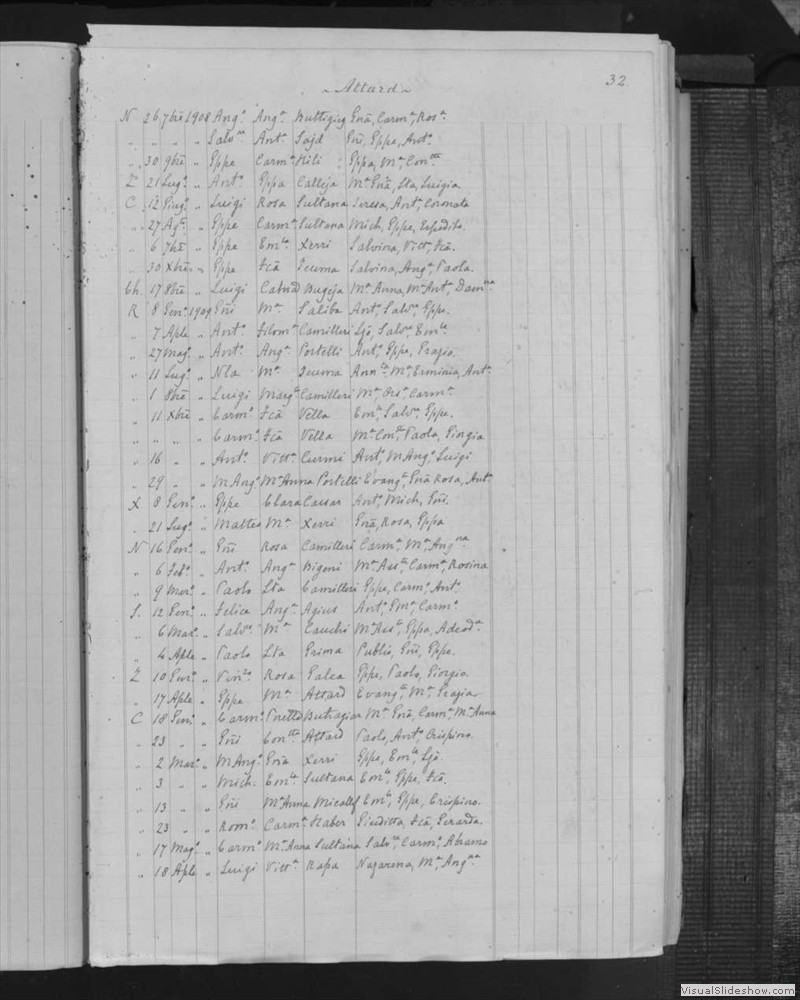 Attard
32.
N 26 7bre 1908 Ang.o Ang.a Buttigieg Gnã, Carm.a, Ros.a
" " " " Salv.re Ant.a Sajd Gñi, Gppe, Ant.o
" 30 9bre " Gppe Carm.a Mili Gppa, M.a Con.tta
Z 21 Lug.o " Ant.o Gppa Calleja M.a Gnã, Lta, Luigia
C 12 Giug.o " Luigi Rosa Sultana Teresa, Ant.a Coronata
" 27 Ag.to " Gppe Carm.a Sultana Mich, Gppe, Espedito.
" 6 7bre " Gppe Em.la Xerri Salvina, Vitt.a, Fcã.
" 30 Xbre " Gppe Fcã Ducma Salvina, Ang.a, Paola.
Ch. 17 8bre " Luigi Cat.na Bugeja M.a Anna, M.a Ant.a
R 8 Gen.o 1909 Gñi M.a Saliba Ant.o Salv.re, Gppe.
" 7 Aple " Ant.o Filom.a Camilleri Ljo, Salv.re Em.le
" 27 Mag.o " Ant.o Ang.a Portelli Ant.o, Gppe, Grazio.
" 11 Lug.o " Nla M.a Ducma M.a Erminia, Ant.a
" 1 8bre " Luigi Marg.ta Camilleri M.a Ors.a Carm.a
" 11 Xbre " Carm.o Fcã Vella Em.le, Salv.re, Gppe.
" " " " Carm.o Fcã Vella M.a Con.tta, Paola, Giorgia
" 16 " " Ant.o Vitt.a Curmi Ant.o, M Ang.o, Luigi
" 29 " " M Ang.o M.a Anna Portelli Evang.ta, Gnã Rosa, Ant.a
X 8 Gen.o " Gppe Clara Cassar Ant.o, Mich, Gñi.
" 21 Lug.o " Matteo M.a Xerri Gnã, Rosa, Gppa
N 16 Gen.o " Gñi Rosa Camilleri Carm.a, M.a, Ang.na
" 6 Feb.o " Ant.o Ang.a Bigeni M.a Ass.ta, Carm.a, Rosina
" 9 Mar.o " Paolo Lta Camilleri Gppe, Carm.o, Ant.o
S. 12 Gen.o " Felice Ang.a Agius Ant.o, Carm.o
" 6 Mar.o " Salv.re M.a Cauchi M.a Ass.ta, Gppa, Adeod.a
" 4 Aple " Paolo Lta Grima Publio, Gñi, Gppe.
Z 10 Gen.o " Vin.zo Rosa Galea Gppe, Paolo, Giorgio.
" 17 Aple " Gppe M.a Attard Evang.ta, M.a Grazia
C 18 Gen.o " Carm.o Butragiar M.a Gnã, Carm.a, M.a Anna
" 23 " " Gñi Con.tta Attard Paolo, Ant.o Crispino.
" 2 Mar.o " M Ang.o Gnã Xerri Gppe, Em.le, Ljo.
" 3 " " Mich. Em.la Sultana Em.le, Gppe, Fcõ.
" 13 " " Gñi M.a Anna Micallef Em.le, Gppe, Crispino.
" 23 " " Rom.o Carm.a Haber Giuditta, Fcã, Gerarda.
" 17 Mag.o " Carm.o M.a Anna Sultana Salv.re, Carm.o, Abramo
" 18 Aple " Luigi Vitt.a Rapa Nazarena, M.a, Ang.na
VisualSlideshow.com